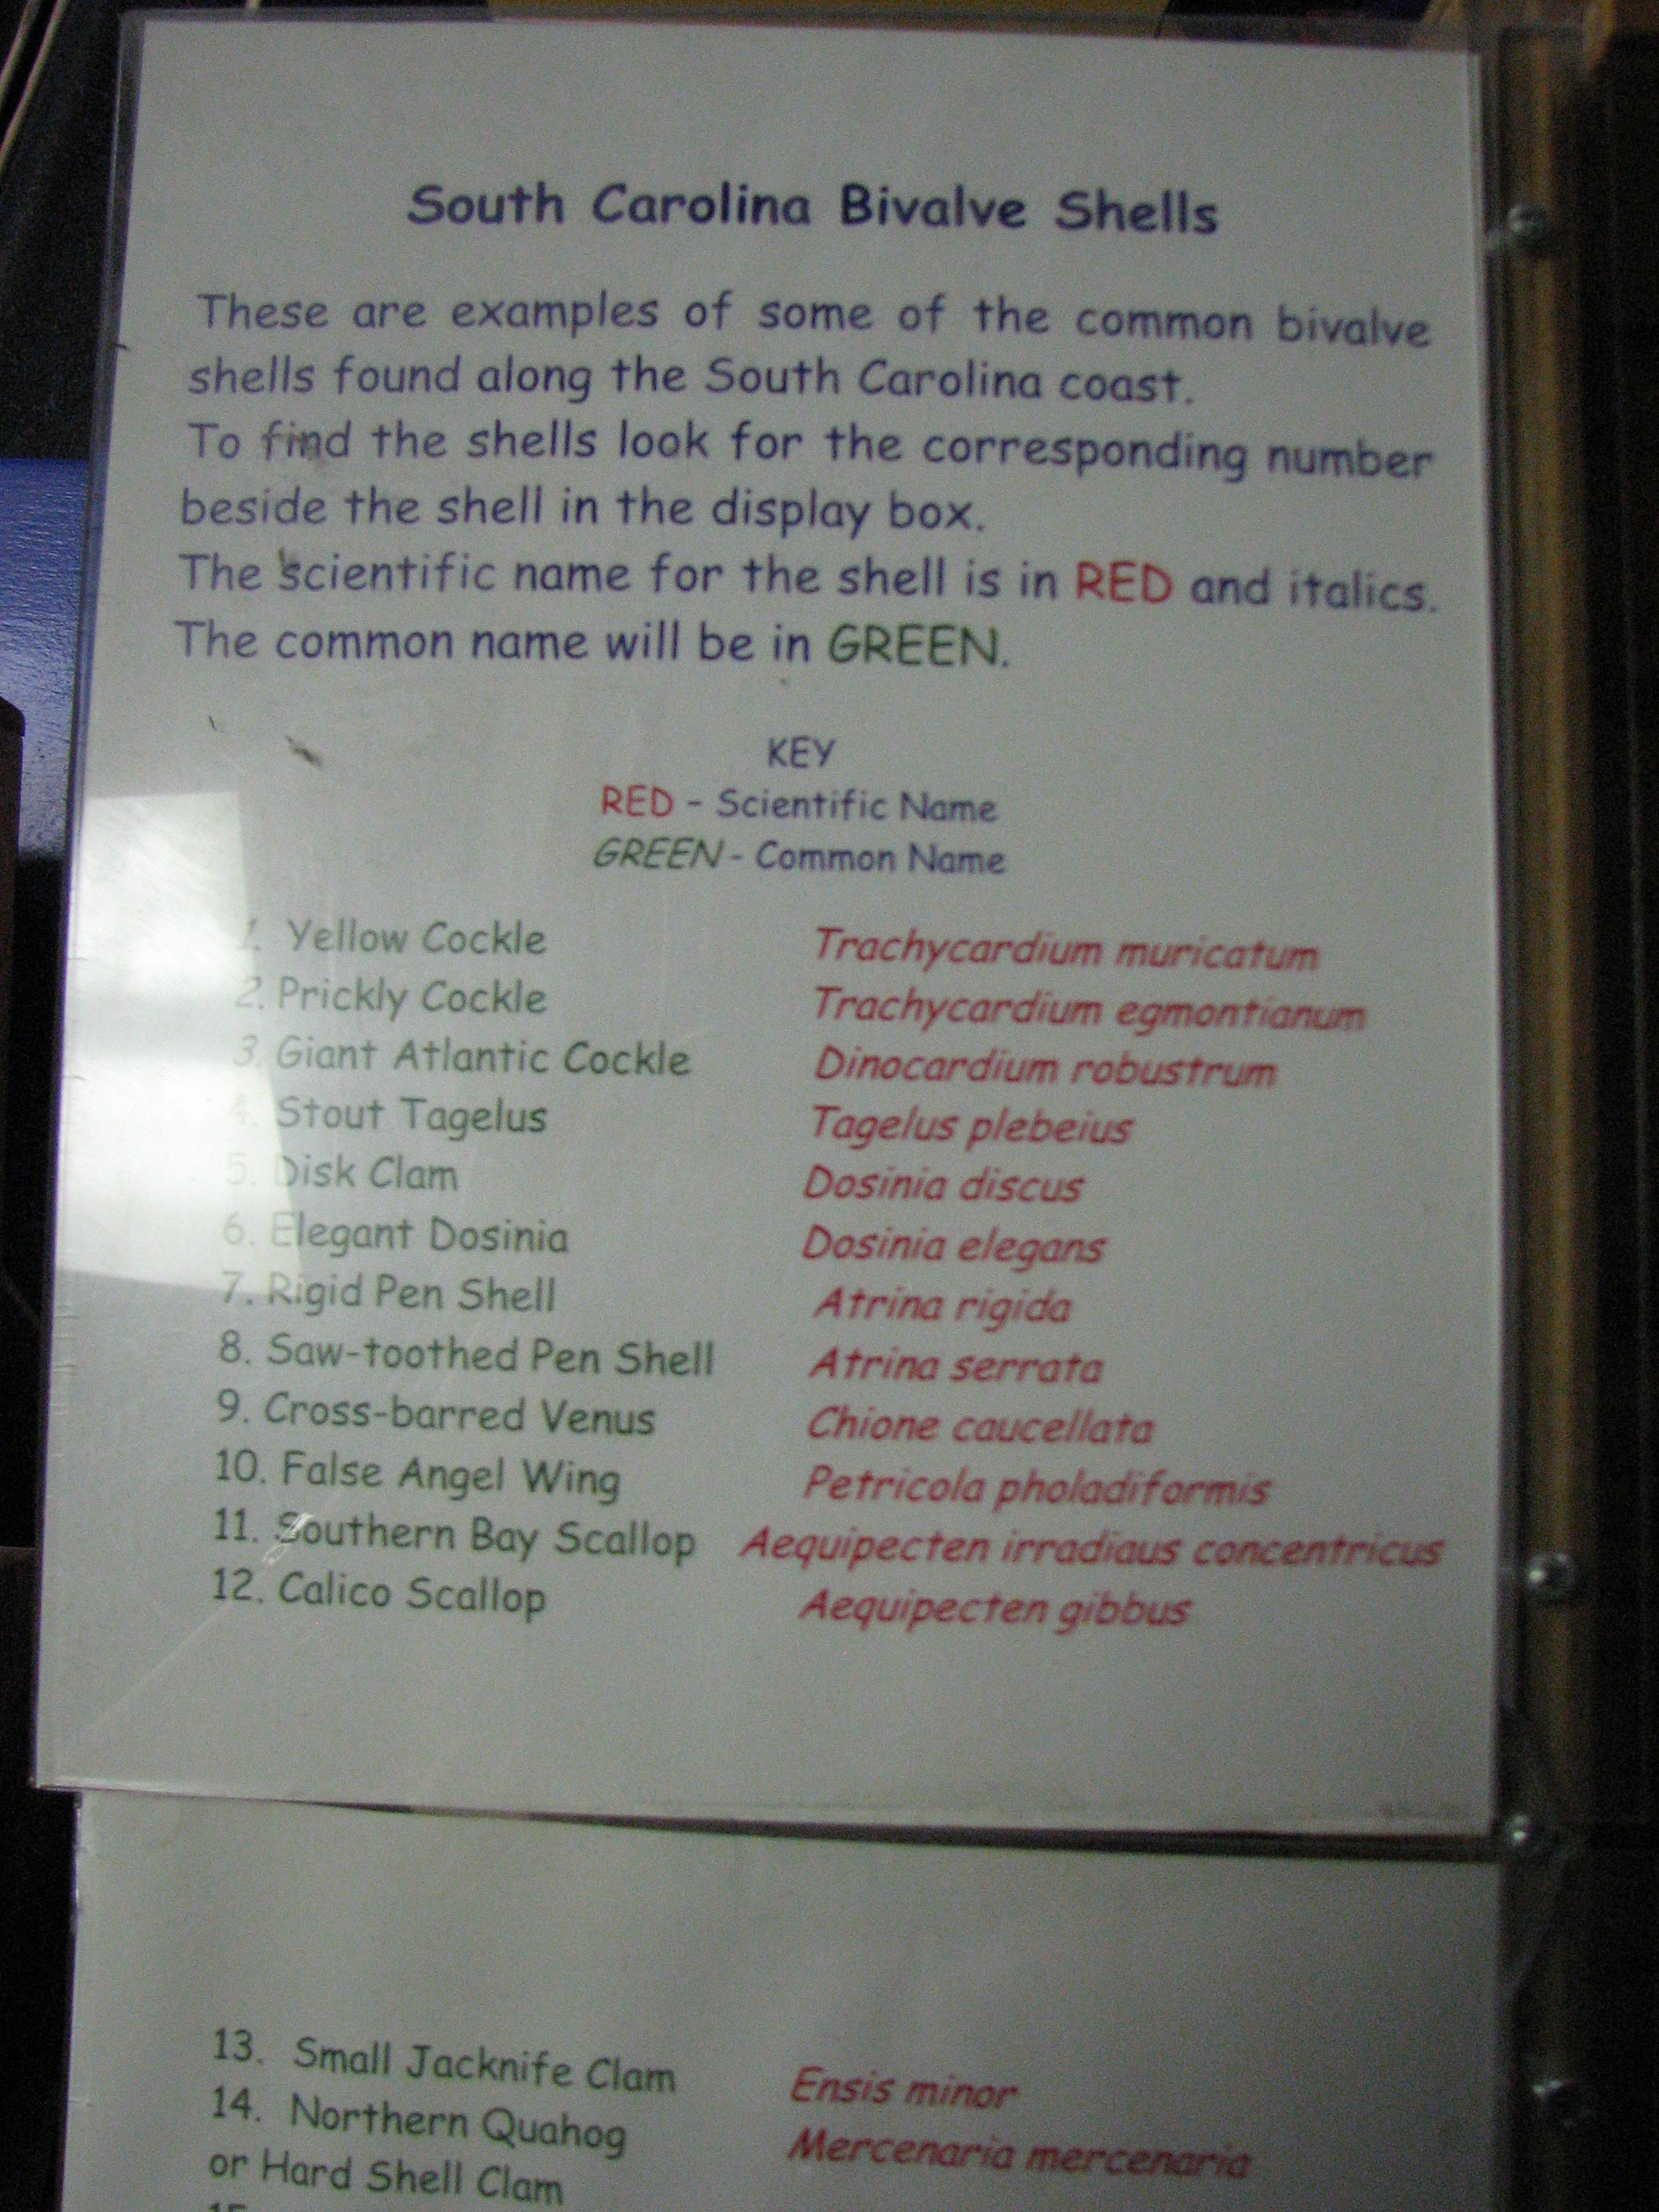 South Carolina Bivalve Shells
These are examples of some of the common bivalve
shells found along the South Carolina coast.
To find the shells look for the corresponding number
beside the shell in the display box.
The scientific name for the shell is in RED and italics.
The common name will be in GREEN.
KEY
RED - Scientific Name
GREEN - Common Name
1. Yellow Cockle Trachycardium muricatum
2. Prickly Cockle Trachycardium egmontianum
3. Giant Atlantic Cockle Dinocardium robustrum
4. Stout Tagelus Tagelus plebeius
5. Disk Clam Dosinia discus
6. Elegant Dosinia Dosinia elegans
7. Rigid Pen Shell Atrina rigida
8. Saw-toothed Pen Shell Atrina serrata
9. Cross-barred Venus Chione caucellata
10. False Angel Wing Petricola pholadiformis
11. Southern Bay Scallop Aequipecten irradiaus concentricus
12. Calico Scallop Aequipecten gibbus
13. Small Jacknife Clam Ensis minor
14. Northern Quahog Mercenaria mercenaria
or Hard Shell Clam